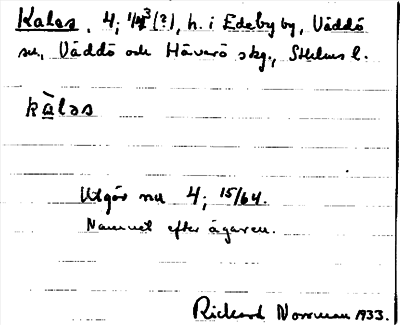 Kalas, 4; 1/4³(?), h. i Edeby by, Väddö
sn, Väddö och Häverö skg., Sthlms l.
kàləs
Utgör nu 4; 15/64.
Namnet efter ägaren.
Rickard Norrman 1933.